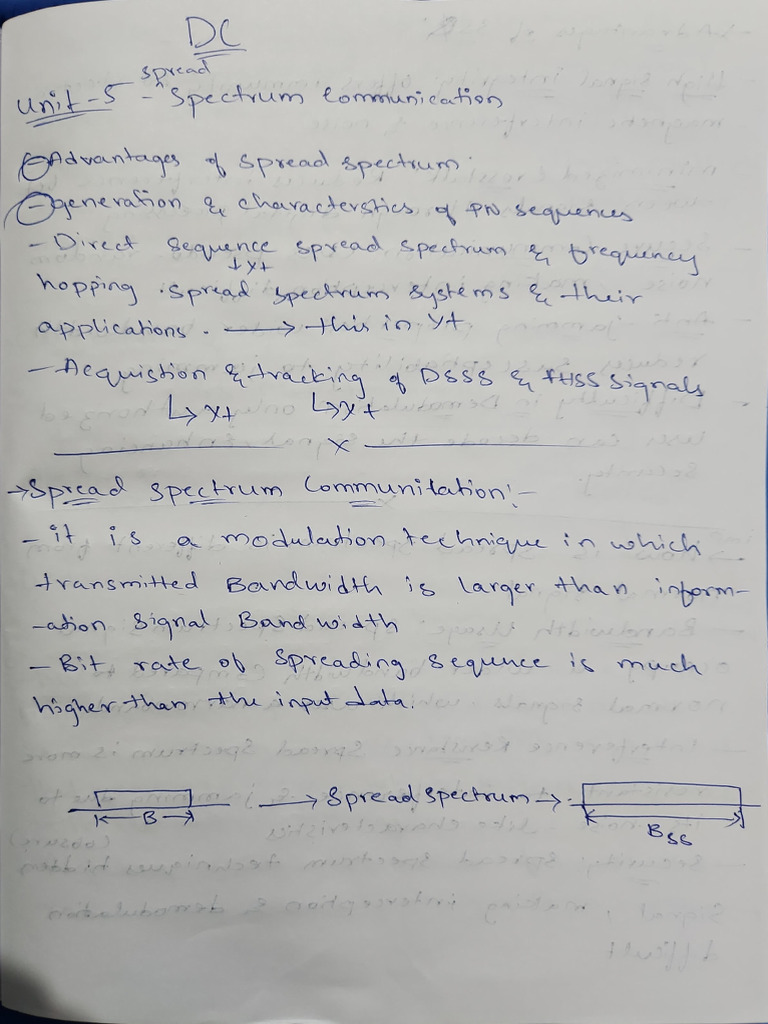 DC
spread
Unit-5 - Spectrum Communication
- Advantages of spread spectrum.
- generation & characterstics of PN sequences
- Direct sequence spread spectrum & frequency
↓ yt
hopping spread spectrum systems & their
applications. → this in yt
- Acquistion & tracking of DSSS & FHSS signals
↳ yt ↳ yt
x
→ Spread spectrum Communication:-
- it is a modulation technique in which
transmitted Bandwidth is larger than inform-
-ation signal Bandwidth
- Bit rate of spreading sequnce is much
higher than the input data.
B → spread spectrum → Bss